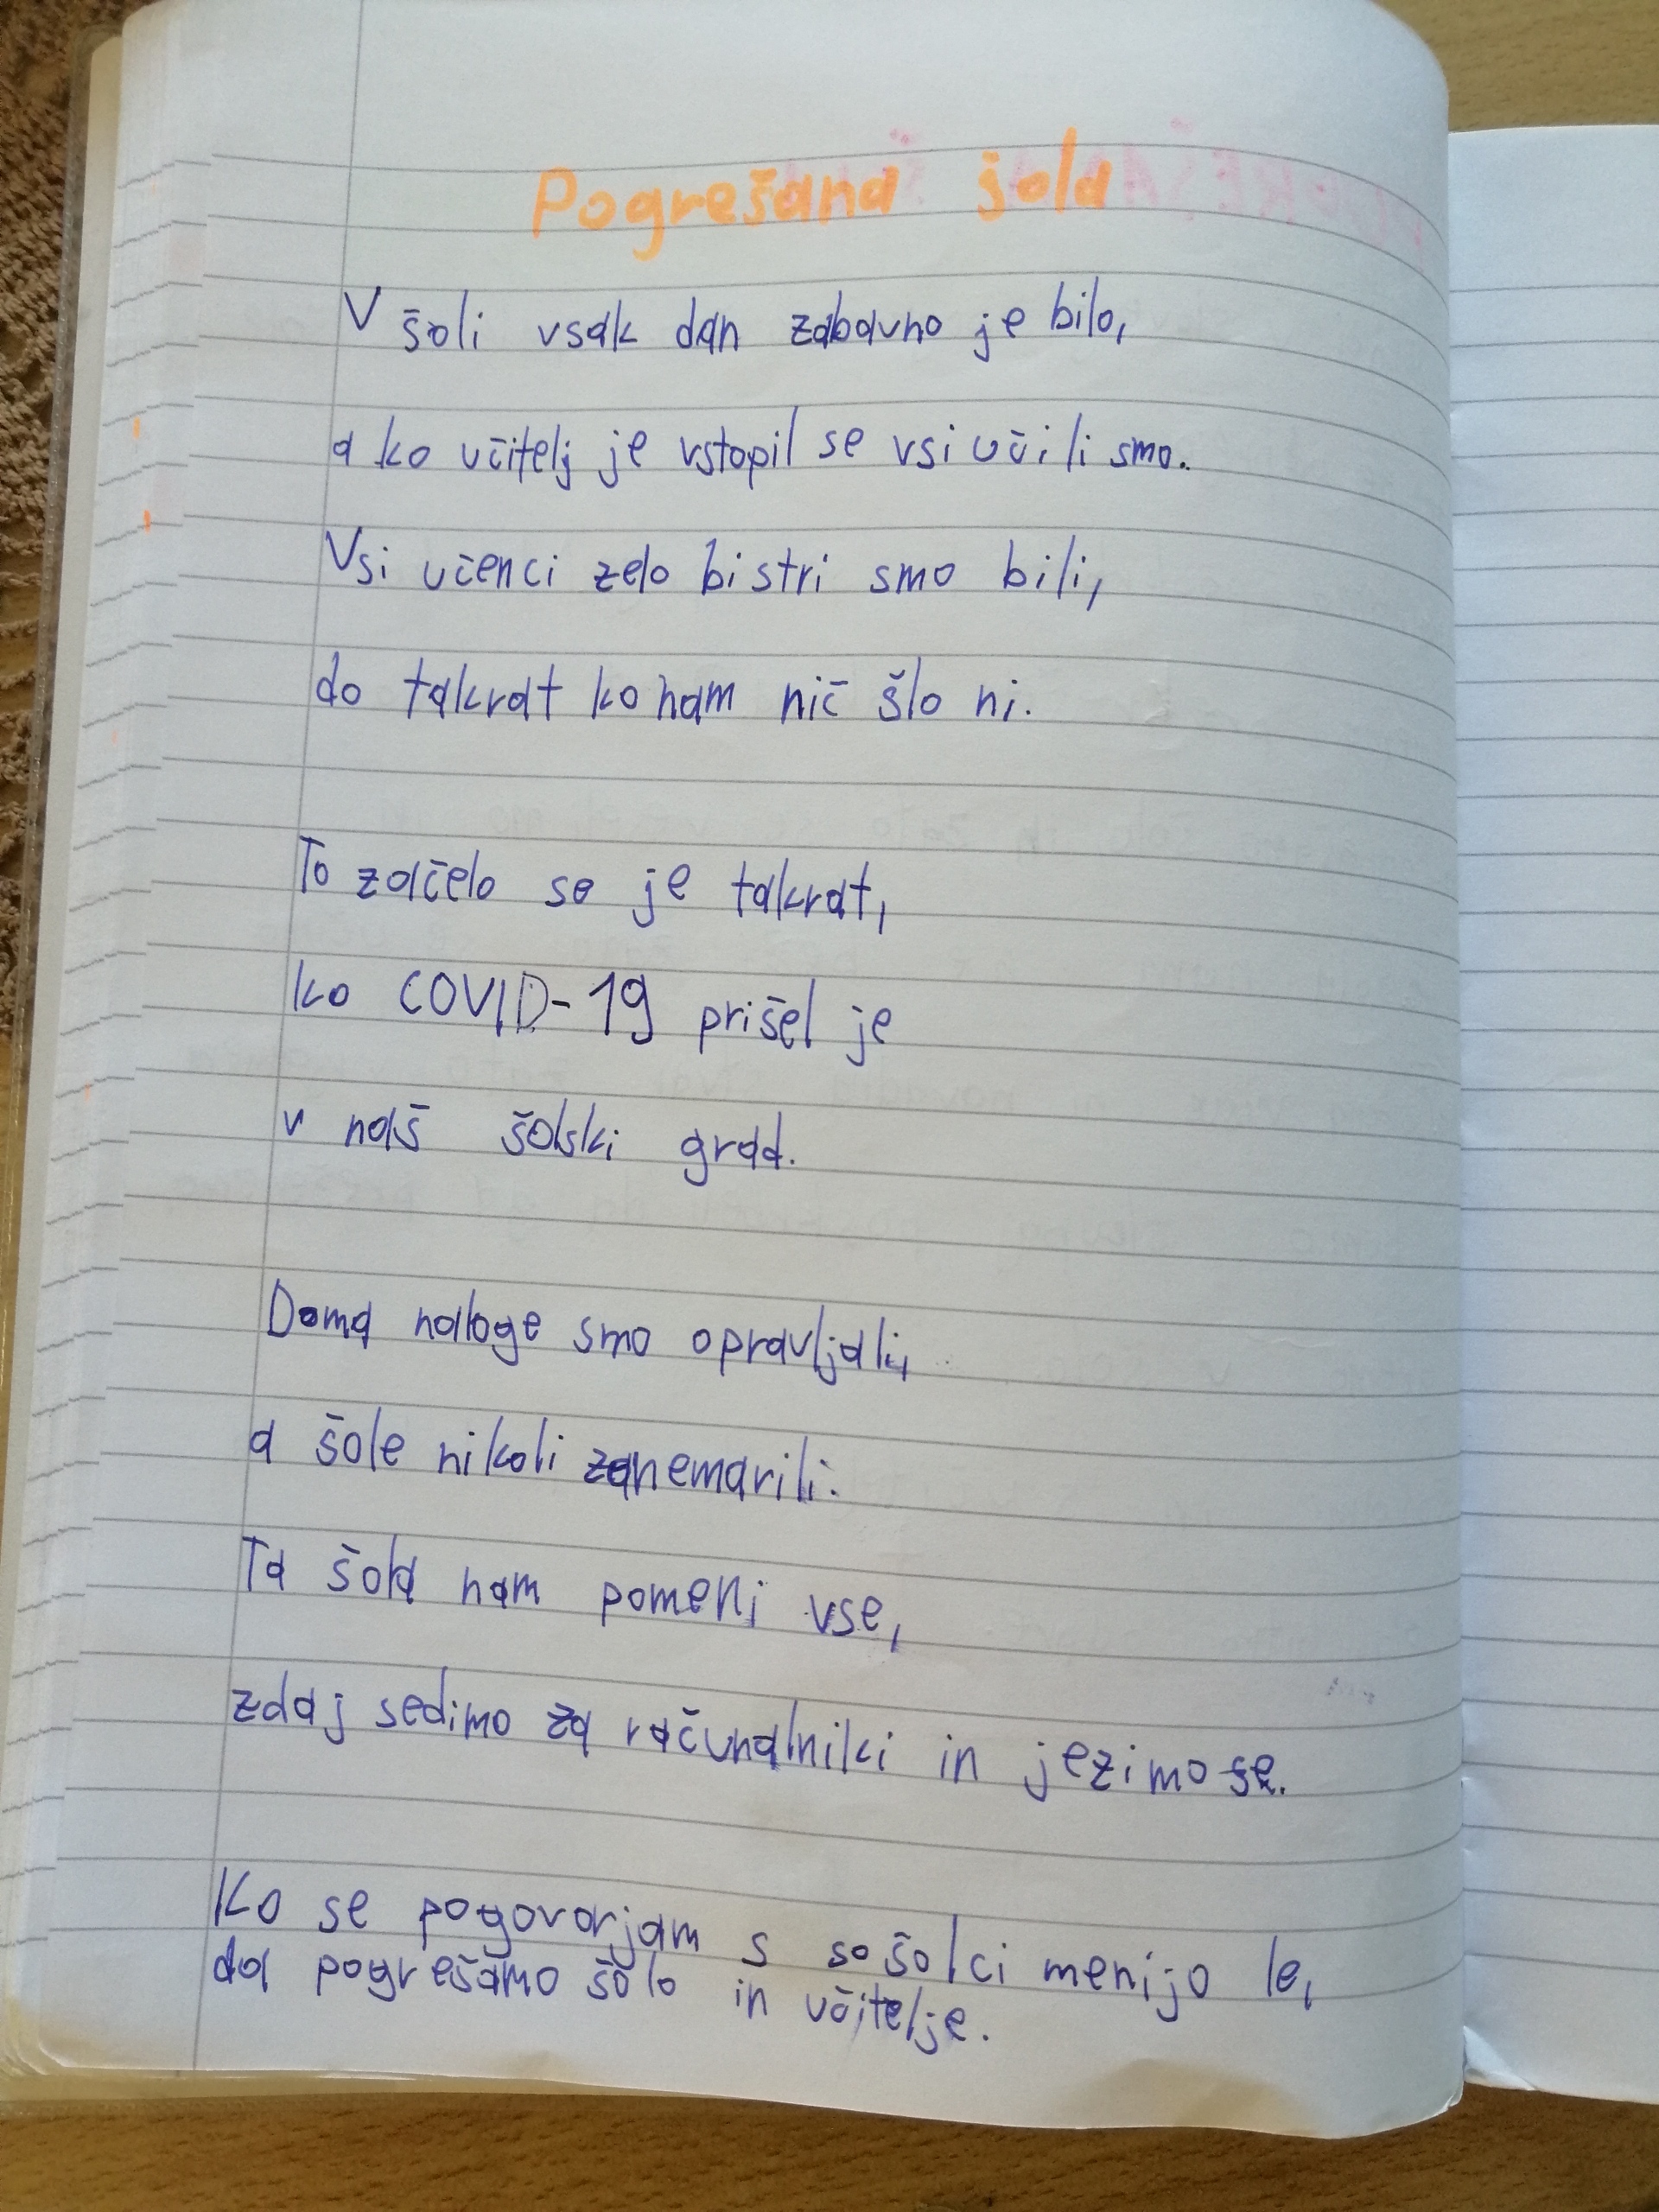 Pogrešana šola
V šoli vsak dan zabavno je bilo,
a ko učitelj je vstopil se vsi učili smo.
Vsi učenci zelo bistri smo bili,
do takrat ko nam nič šlo ni.
To začelo se je takrat,
ko COVID-19 prišel je
v naš šolski grad.
Doma naloge smo opravljali,
a šole nikoli zanemarili.
Ta šola nam pomeni vse,
zdaj sedimo za računalniki in jezimo se.
Ko se pogovorjam s sošolci menijo le,
da pogrešamo šolo in učitelje.